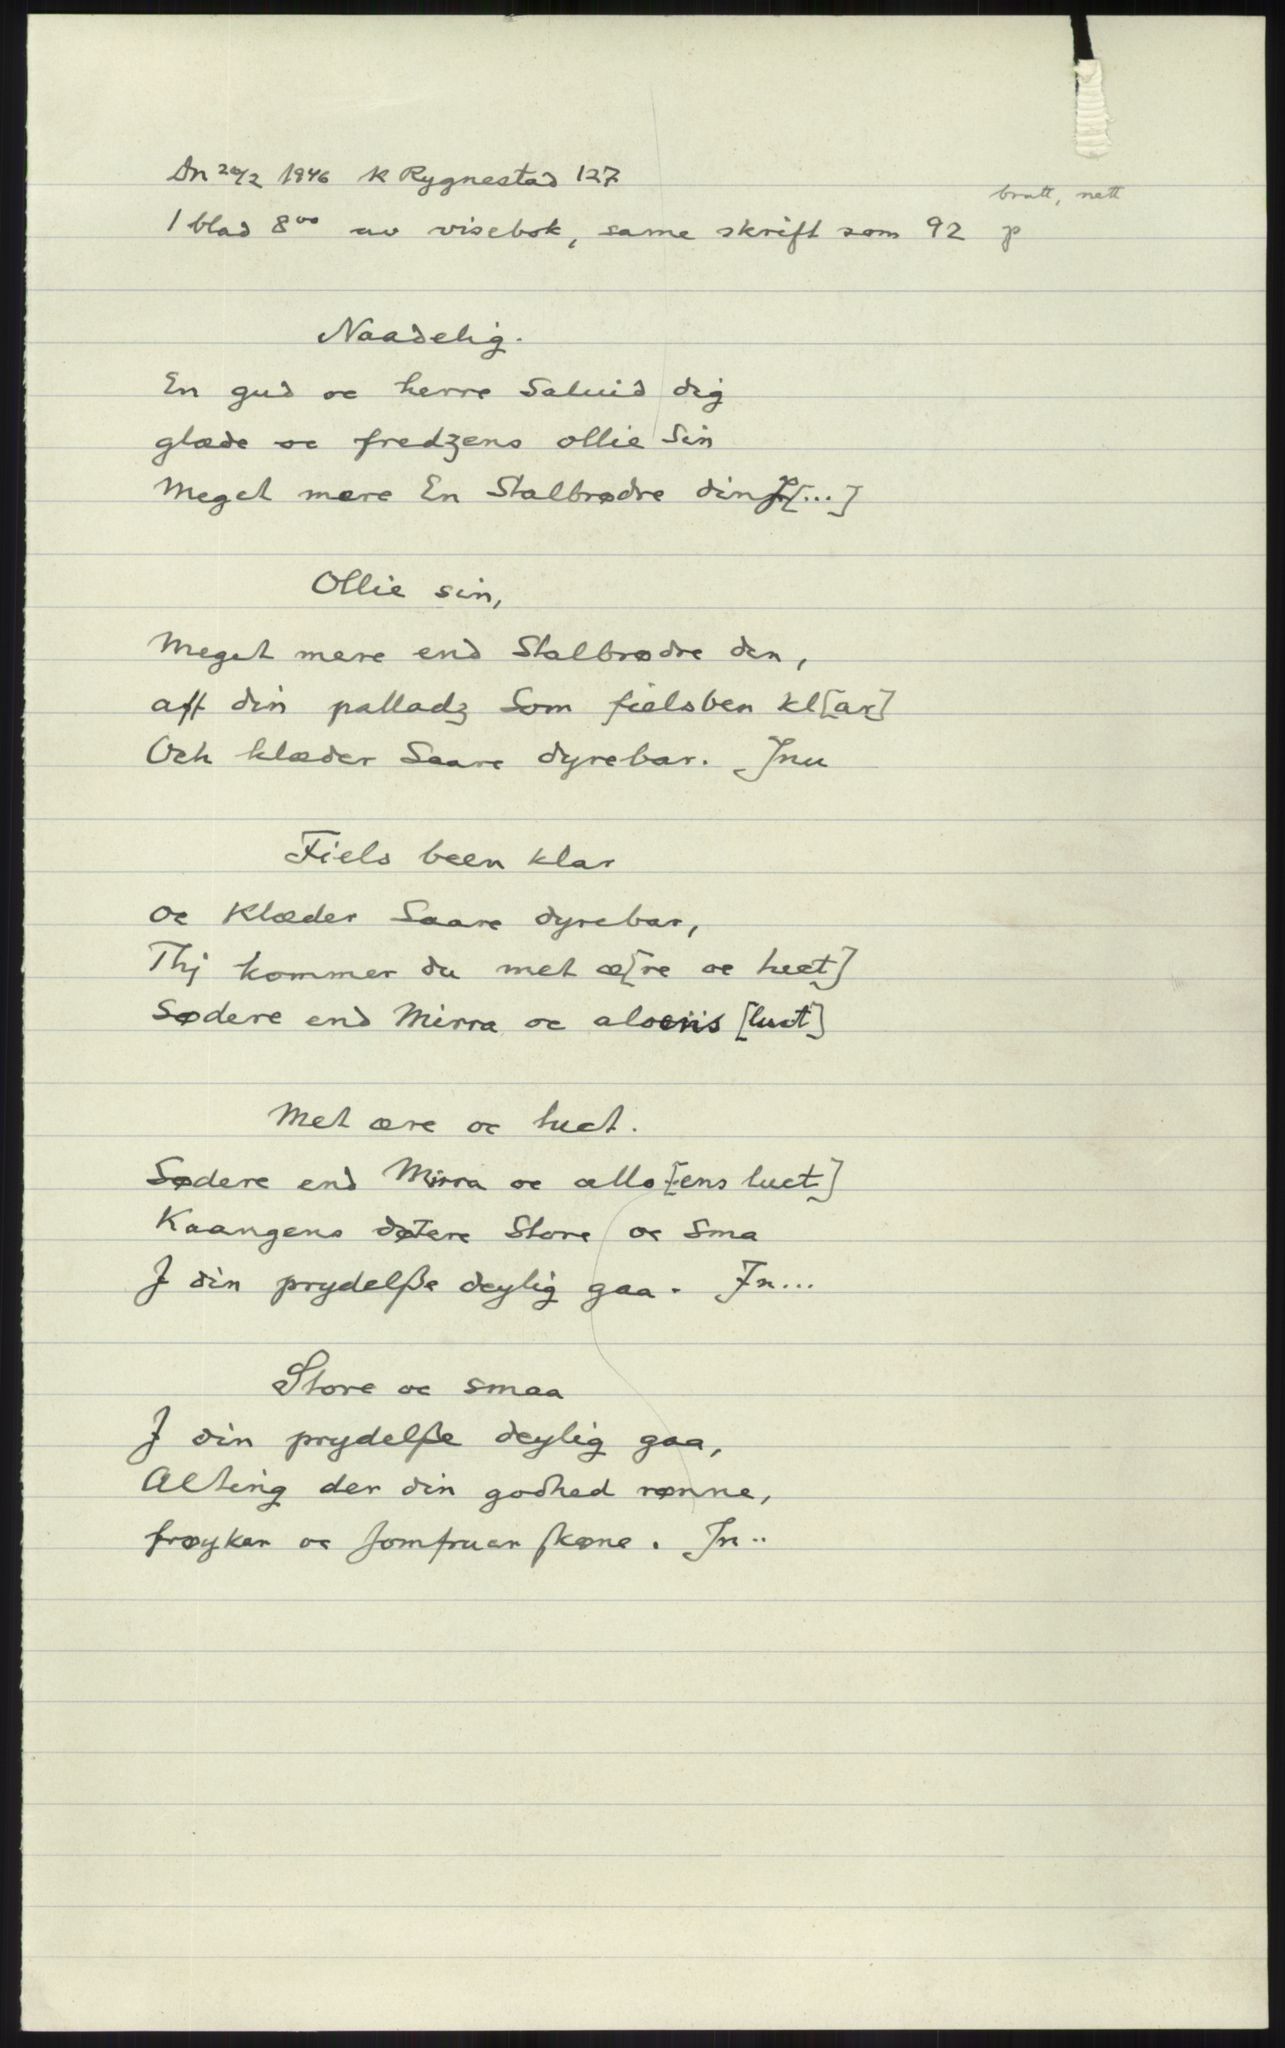 An 20/2 1946 K Rygnestad 127
brutt, nett
1 blad 8vo av visebok, same skrift som 92 p
Naadelig.
En gud oc herre Saluid dig
glæde oc fredzens ollie Sin
Meget mere En Stalbrødre din [...]
Ollie sin,
Meget mere end Stalbrødre den,
aff din palladz Som fielsben kl[ar]
Och klæder Saare dyrebar. Jnu
Fiels been klar
oc Klæder Saare dyrebar,
Thj kommer du met æ[re oc huct]
Sødere end Mirra oc aloeiis [luct]
Met ære oc tuct.
Sødere end Mirra oc allo[ens luct]
Kaangens døtere Store oc Sma
J din prydelße deylig gaa. Jn...
Store oc smaa
J din prydelße deylig gaa,
Alting der din godhed rønne,
frøyker oc Jomfruer skøne. Jn..